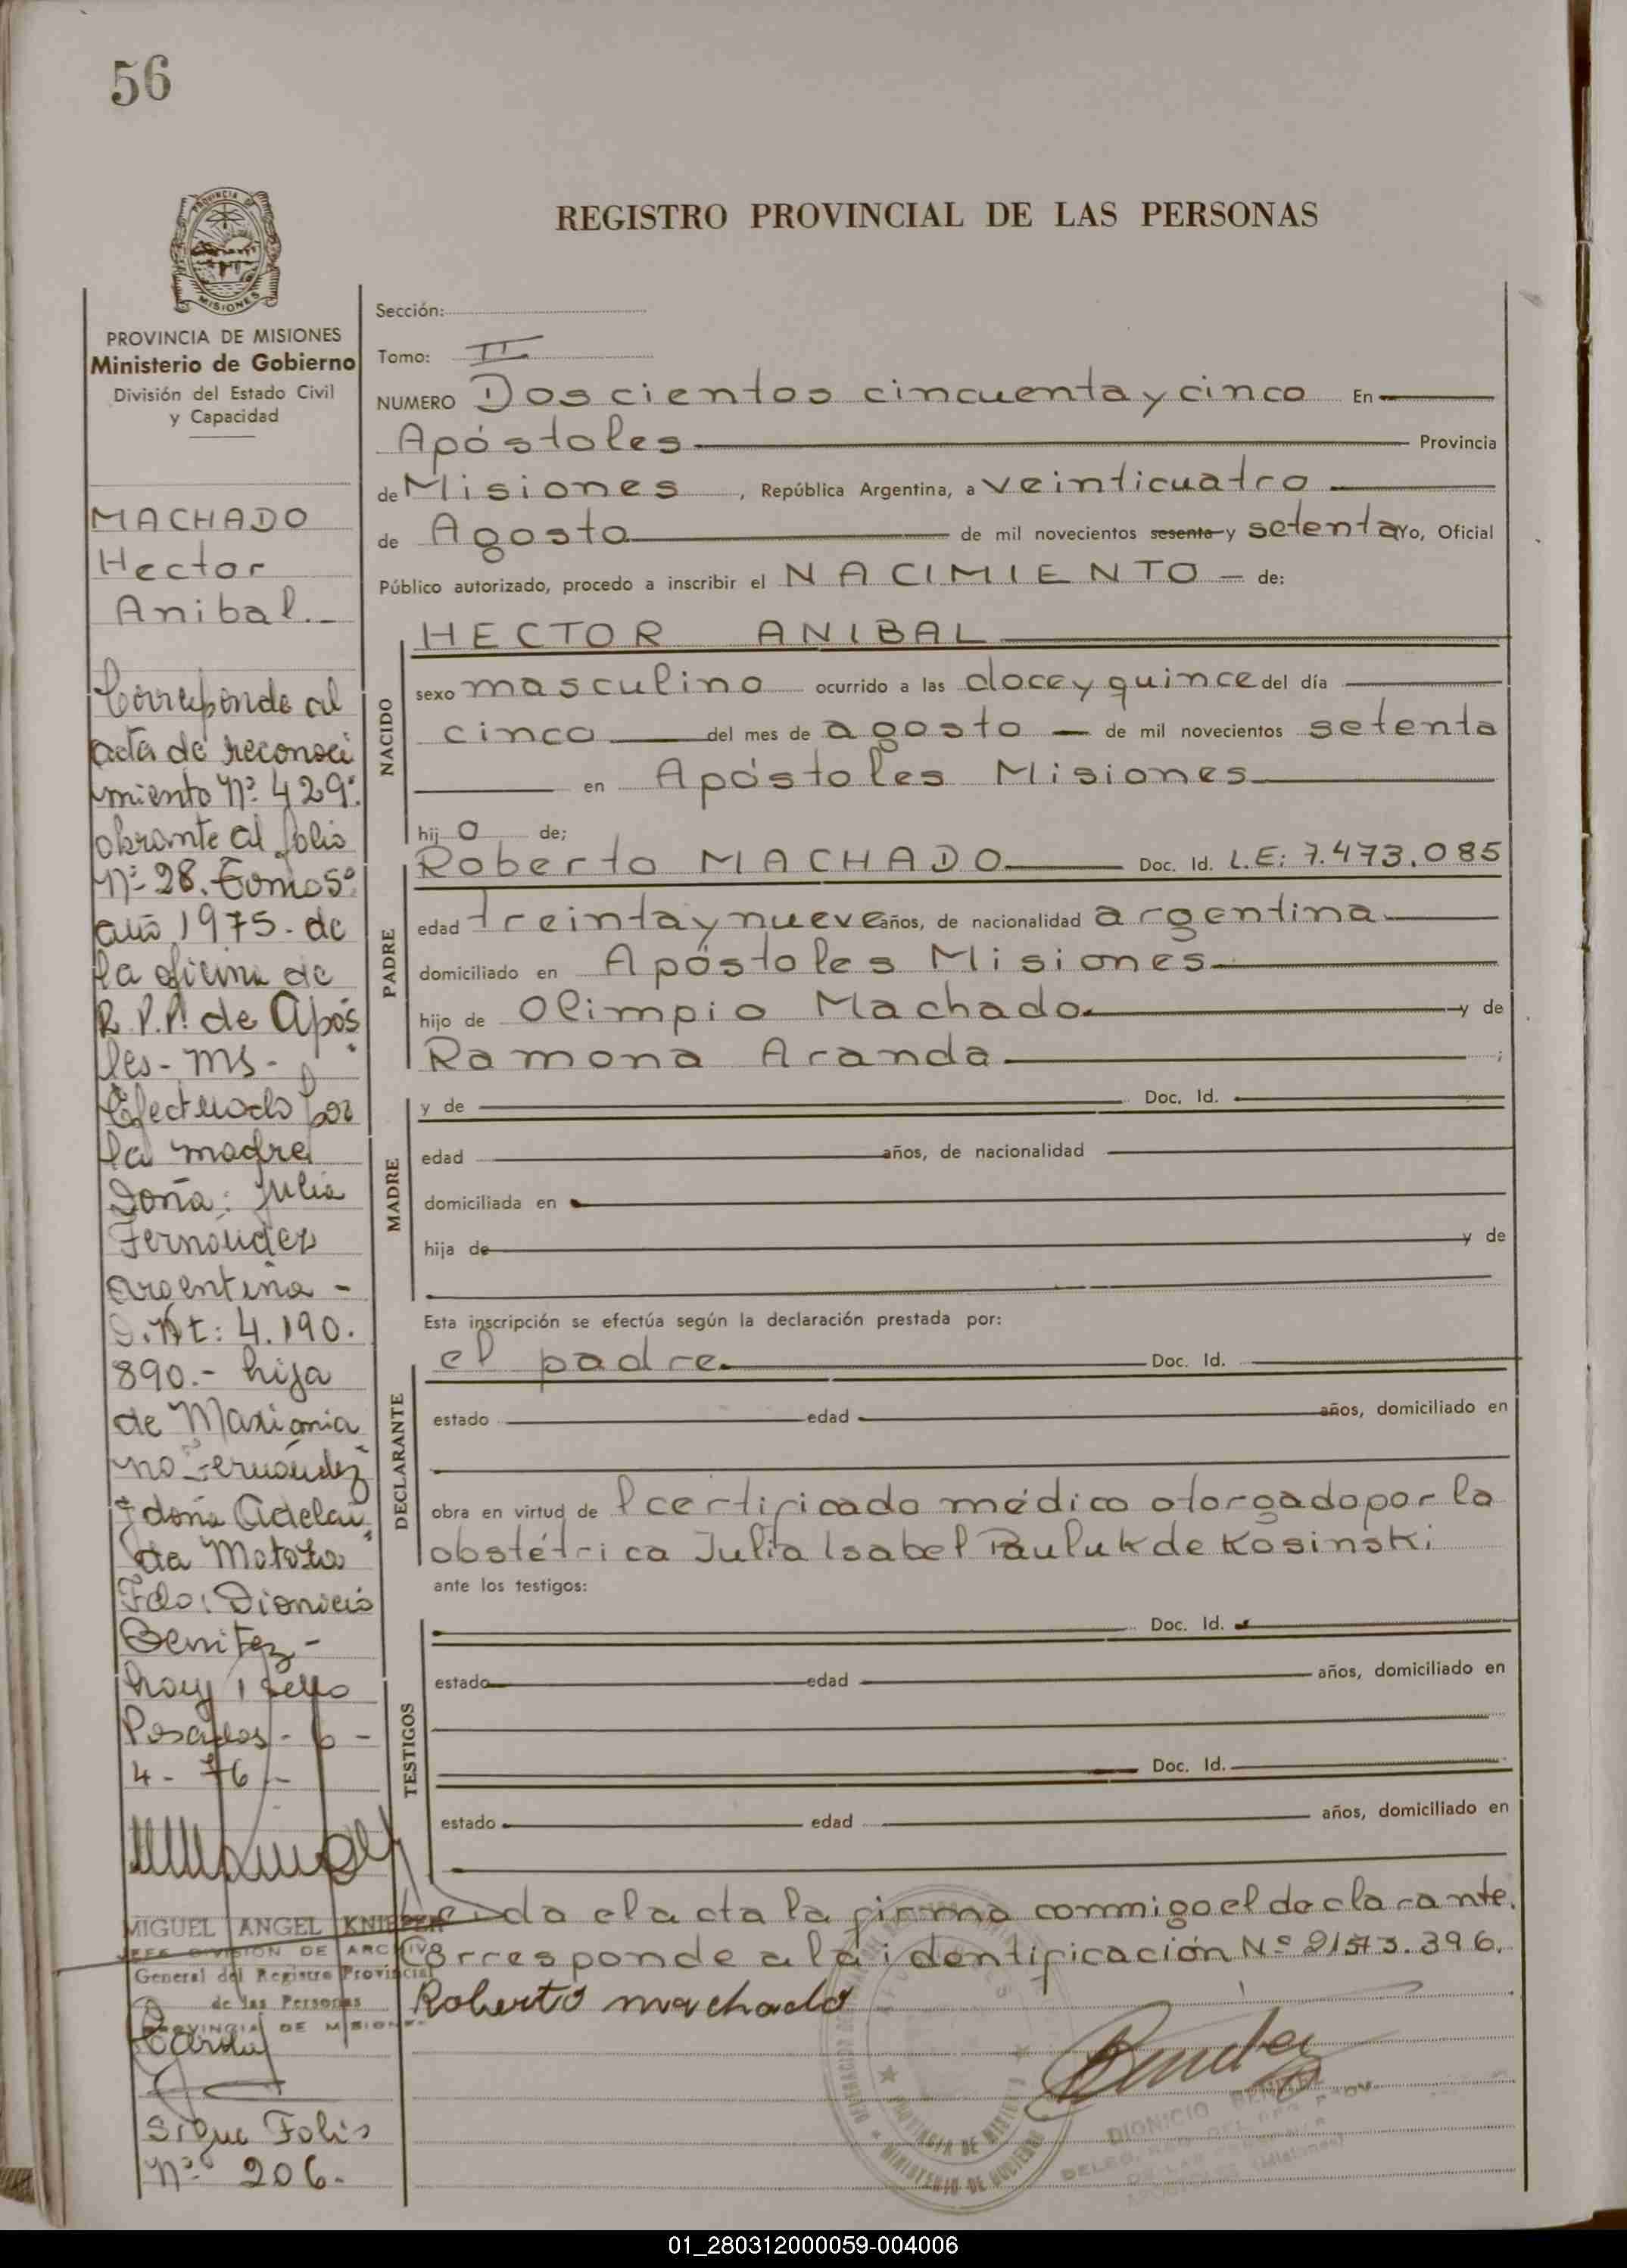 56
PROVINCIA DE MISIONES
Ministerio de Gobierno
División del Estado Civil
y Capacidad
MACHADO
Hector
Anibal.-
Correponde al
acta de reconoci
miento Nº 429:
obrante al folio
Nº 28. Tomo 5º
año 1975. de
la oficina de
R.P.P. de Após
les - Ms -
Efectuado por
la madre
Doña: Julia
Fernández
argentina -
4.190.
890.- hija
de Maximia
no Fernández
y doña Adelai
da
Fdo: Dionicio
Benitez -
hoy 1 sello
Posadas - 6 -
4 - 76 -
MIGUEL ANGEL
JEFE DIVISION DE ARCHIVO
General del Registro Provincial
de las Personas
PROVINCIA DE MISIONES
Sigue Folio
Nº 206.
REGISTRO PROVINCIAL DE LAS PERSONAS
Sección:
Tomo: II
NUMERO Doscientos cincuenta y cinco En
Apóstoles Provincia
de Misiones, República Argentina, a veinticuatro
de Agosto de mil novecientos sesenta y setenta Yo, Oficial
Público autorizado, procedo a inscribir el NACIMIENTO de:
HECTOR ANIBAL
NACIDO
sexo masculino ocurrido a las doce y quince del día
cinco del mes de agosto de mil novecientos setenta
en Apóstoles Misiones
hijo de;
PADRE
Roberto MACHADO Doc. Id. L.E: 7.473.085
edad treinta y nueve años, de nacionalidad argentina
domiciliado en Apóstoles Misiones
hijo de Olimpio Machado y de
Ramona Aranda ;
MADRE
y de Doc. Id.
edad años, de nacionalidad
domiciliada en
hija de y de
Esta inscripción se efectúa según la declaración prestada por:
DECLARANTE
el padre. Doc. Id.
estado edad años, domiciliado en
obra en virtud de l certificado médico otorgado por la
obstétrica Julia Isabel Pauluk de Kosinski
ante los testigos:
TESTIGOS
Doc. Id.
estado edad años, domiciliado en
Doc. Id.
estado edad años, domiciliado en
Leida el acta la firma commigo el declarante.
Corresponde a la identificación Nº
Roberto machado
PROVINCIA DE MISIONES
MINISTERIO DE GOBIERNO
DIONICIO BENITEZ
01_280312000059-004006